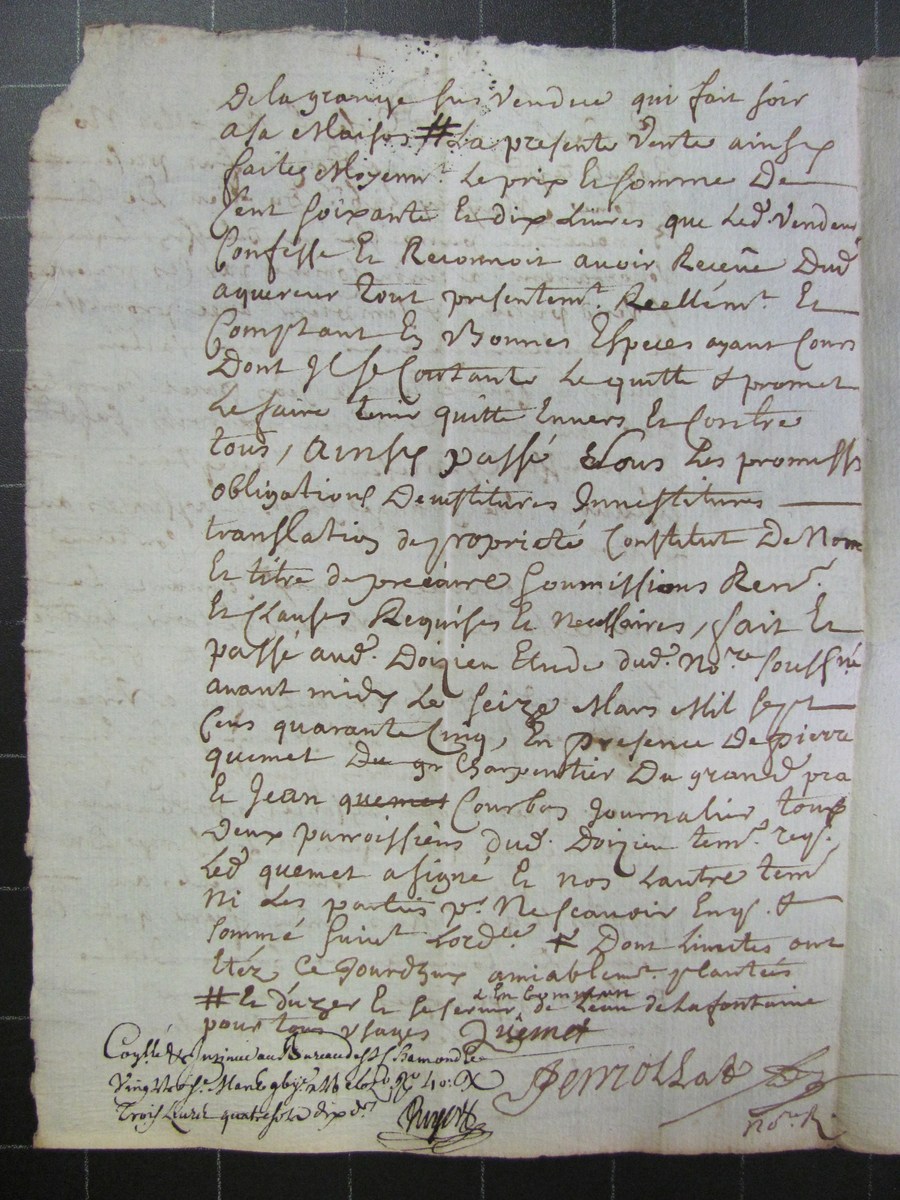 De la grange sus vendue qui fait soir
a sa Maison # La presente vente ainsy
faitte Moyenn.t Le prix Et somme De
Cent soixante Et dix Livres que Led. vendeur
Confesse Et Reconnoit avoir Receüe Dud
aquereur tout presentem.t Reellém.t Et
Comptant En Bonnes Especes ayant Cours
Dont Il se Contante Le quitte & promet
Le faire tenir quitte Envers Et Contre
tous, Ainsy passé sous Les promisss
obligations Devestitures Investitures
translation de proprieté Constitut De Nom
Et titre de precaire soumissions Ren.
Et Clauses Requises Et Necessaires, fait Et
passé aud. Doizieu Etude dud. No.re soussné
avant midy Le seize Mars Mil sept
Cens quarante Cinq, En presence De pierre
quemet Du gr Charpentier Du grand pra
Et Jean quemet Courbon Journalier tous
Deux parroissiens dud. Doizieu tem. req.
Led quemet a signé Et nos Lautre tem
Ni Les parties p.r Ne scavoir Enq. &
sommé suiv.t Lord.ce # Dont Limites ont
Etéz Ce Jourdhuy amiablem.t plantées
# Et d'uzer Et se servir & En Commun de Leau de la fontaine
pour tous usages Quemet
Bureau de St Chamond Le
Trois Livres quatre sols dix d.
No.re R.